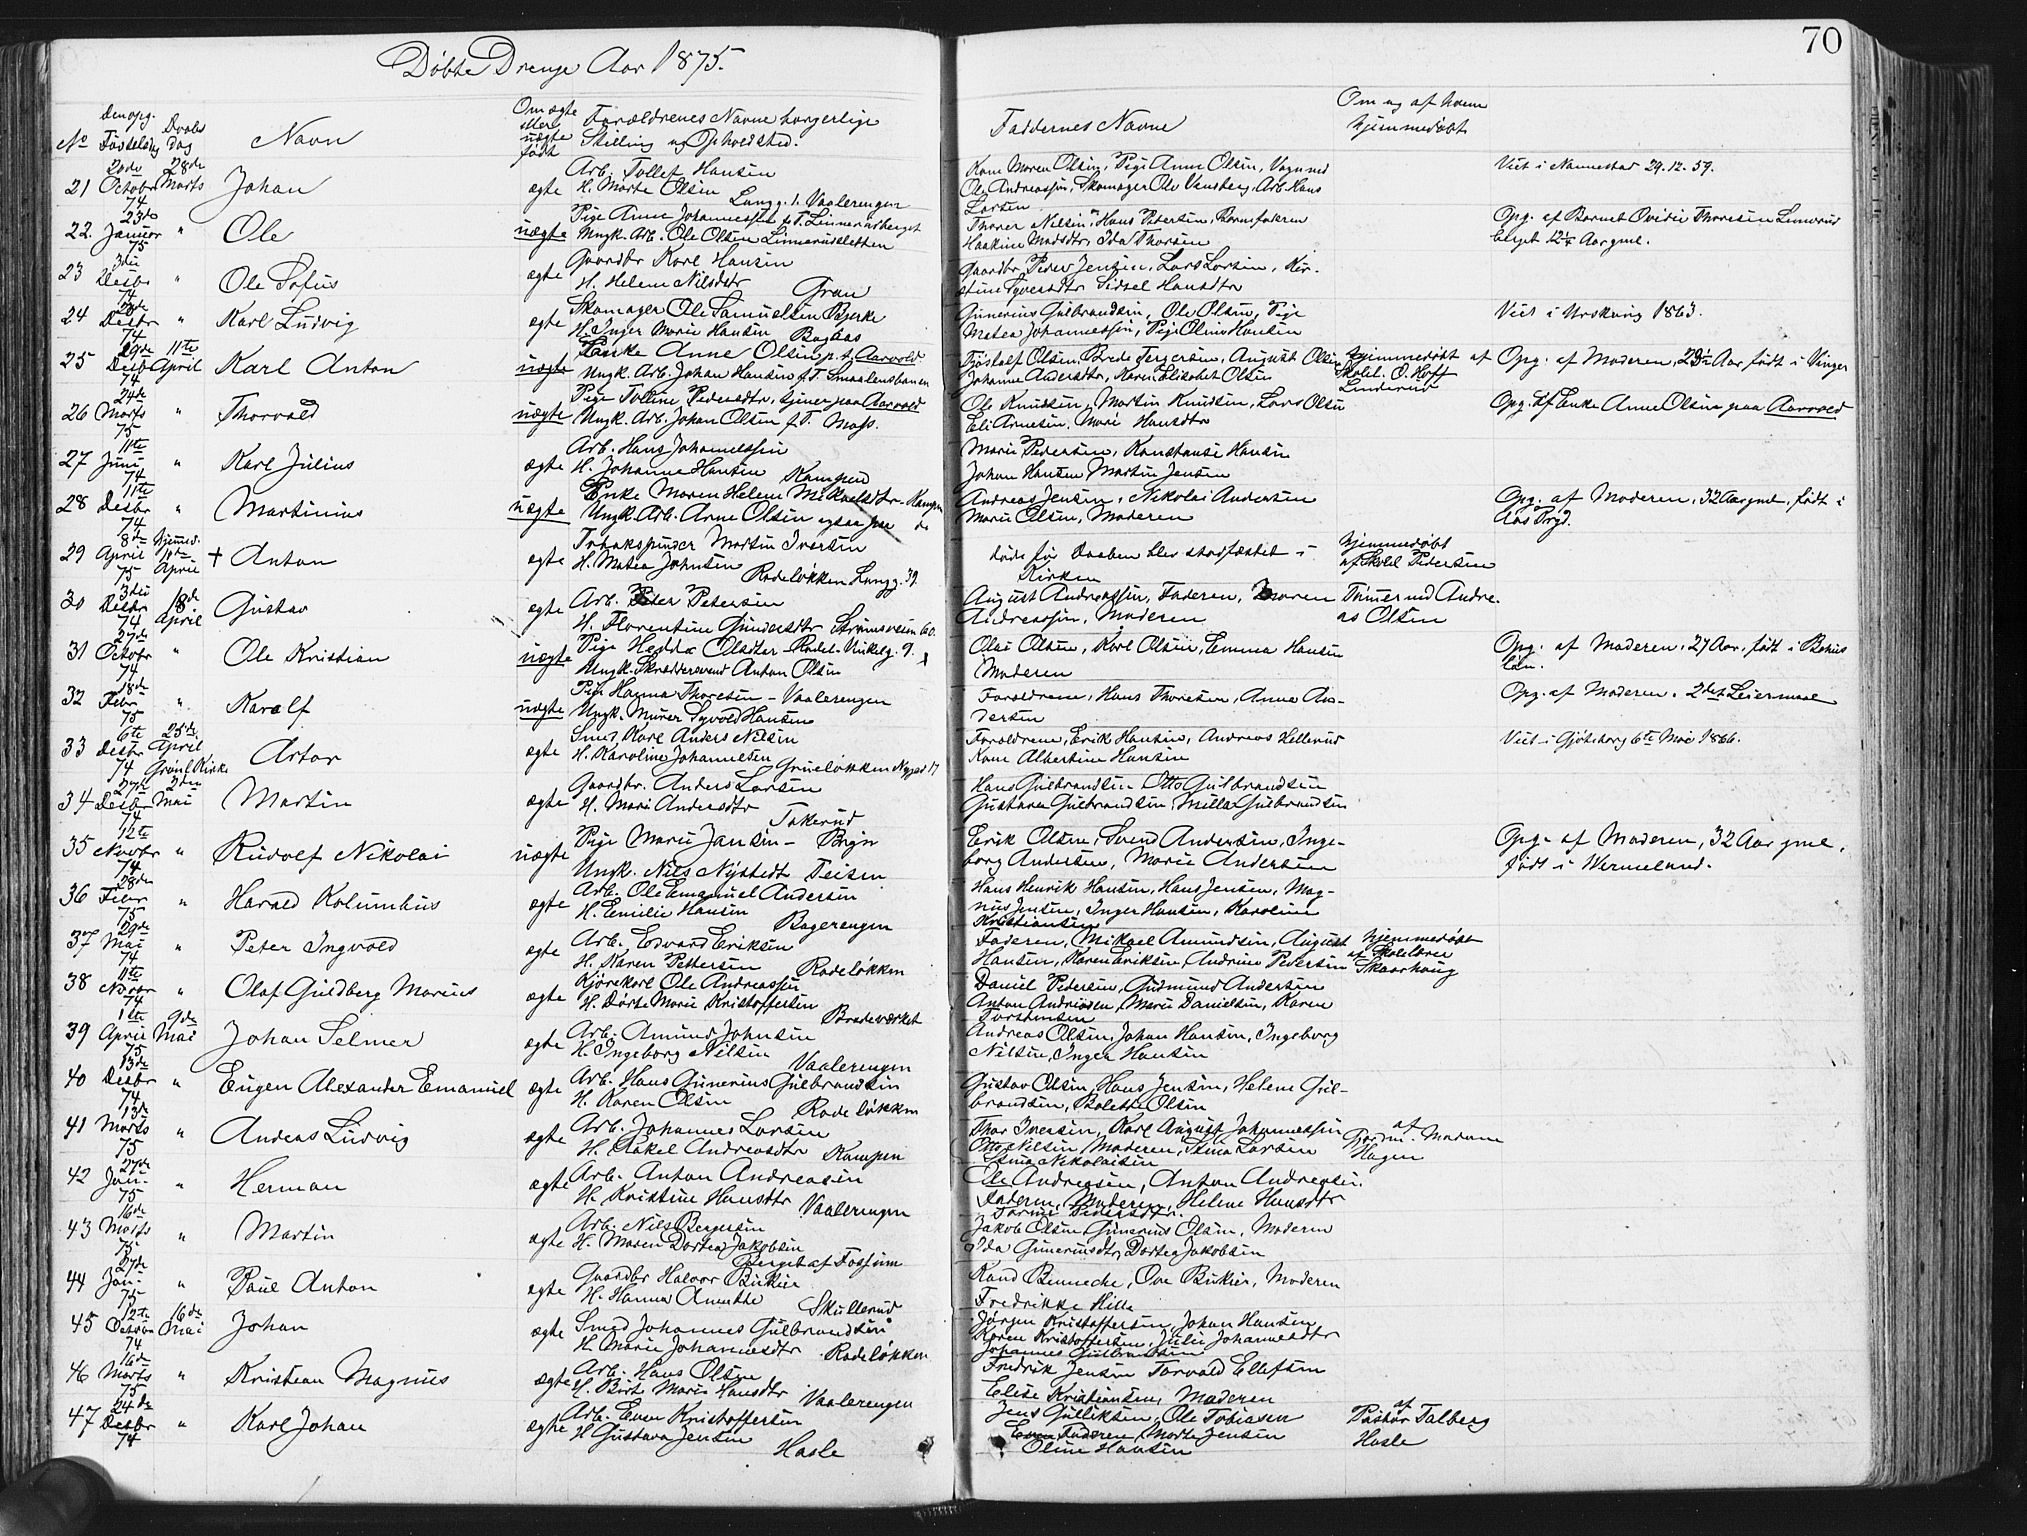 70
Døbte Drenge Aar 1875.
No
Den opg. Fødselsdag
Daabs dag
Navn
Om ægte eller uægte født
Forældrenes Navne borgerlige
Stilling og Opholdsted.
Faddernes Navne
Om og af hvem
hjemmedøbt
21 20de Octobr 74 28de Marts Johan ægte Arb. Tollef Hansen
H. Marte Olsen Langg. 1. Vaalerengen
Kone Maren Olsen, Pige Anne Olsen, Vognmd
Ole Andreassen, Skomager Ole Vensberg, Arb. Hans
Larsen
Viet i Nannestad 29.12.59.
22. 23de Januar 75 " Ole uægte Pige Anne Johannessen f.T. Linnerudberget
Ungk. Arb. Ole Olsen Linnerudsletten
Thorer Nilsen, Hans Petersen, Barnefaderen
Haakine Madsdtr, Ida Thorsen
Opg. af Barnet Ovidie Thoresen Linnerud
berget 12¼ Aar gml.
23 3die Desbr 74 " Ole Sofus ægte Gaardbr Karl Hansen
H. Helene Nilsdtr Gran
Gaardbr Peder Jensen, Lars Larsen, Kir-
stine Syvertsdtr Sidsel Hansdtr
24 28de Desbr 74 " Karl Ludvig ægte Skomager Ole Samuelsen Bjerke
H. Inger Marie Hansen Bagaas
Gunerius Gulbrandsen, Ole Olsen, Pige
Matea Johannessen, Pige Oline Hansen
Viet i Urskoug 1863.
25 29de Desb 74 11te April Karl Anton uægte Enke Anne Olsen p.t. Aarvold
Ungk. Arb. Johan Hansen f.T. Smaalensbanen
Tjøstolf Olsen, Brede Jørgersen, August Olsen
Johanne Andersdtr, Karen Elisabet Olsen
hjemmedøbt af
Skolel. O. Hoff
Linderud
Opg. af Moderen, 29½ Aar, født i Vinger
26 24de Marts 75 " Thorvald uægte Pige Tolline Pedersdtr, tjener paa Aarvold
Ungk. Arb. Johan Olsen f.T. Moss.
Ole Knudsen, Martin Knudsen, Lars Olsen
Eli Arnesen, Mari Hansdtr
Opg. af Enke Anne Olsen paa Aarvold
27 11te Juni 74 " Karl Julius ægte Arb. Hans Johannessen
H. Johanne Hansen Kampen
Marie Pedersen, Konstanse Hansen
Johan Hansen Martin Jensen
28 11te Desbr 74 " Martinius uægte Enke Maren Helene Mikkelsdtr - Kampen
Ungk. Arb. Arne Olsen ogsaa paa do
Andreas Jensen, Nikolai Andersen
Marie Olsen, Moderen
Opg. af Moderen, 32 Aar gml, født i
Aas Prgd.
29 8de April 75 hjemmed. 10de April + Anton ægte Tobakspinder Martin Iversen
H. Matea Johnsen Rodeløkken Langg. 39.
døde før Daaben blev stadfæstet i
Kirken
hjemmedøbt
af Skolel Pedersen
30 3die Desbr 74 18de April Gustav ægte Arb. Peter Petersen
H. Florentine Gundersdtr Strømsveien 60.
August Andreassen, Faderen, Maren
Andreassen, Moderen
Tømermd Andre-
as Olsen
31 27de Octobr 74 " Ole Kristian uægte Pige Hedda Olsdtr - Rodel. Vinkelg. 9.
Ungk. Skræddersvend Anton Olsen
Olai Olsen, Karl Olsen, Emma Hansen
Moderen
Opg. af Moderen, 27 Aar, født i Bohus
län.
32 18de Febr 75 " Karalf uægte Pige Hanna Thoresen - Vaalerengen
Ungk. Murer Syvold Hansen
Forældrene, Hans Thoresen, Anne An-
dersen
Opg. af Moderen. 2det Leiermaal
33 6te Desbr 74 25de April Grønl. Kirke Artor ægte Smed Karl Anders Nilsen
H. Karoline Johannesen Grueløkken Nygad 17
Forældrene, Erik Hansen, Andreas Hellerud
Kone Albertine Hansen
Viet i Gjøteborg 6te Mai 1866.
34 27de Desbr 74 2den Mai Martin ægte Gaardbr. Anders Larsen
H. Mari Andersdtr Tokerud
Hans Gulbrandsen Otto Gulbrandsen
Gustava Gulbrandsen, Milla Gulbrandsen
35 12te Novbr 74 " Rudolf Nikolai uægte Pige Marie Jansen - Bryn
Ungk. Nils Nystedt Teisen
Erik Olsen, Svend Andersen, Inge-
borg Andersen, Marie Andersen
Opg. af Moderen, 32 Aar gml,
født i Wermeland.
36 28de Febr 75 " Harald Kolumbus ægte Arb. Ole Emanuel Andersen
H. Emilie Hansen Bagerengen
Hans Henrik Hansen, Hans Jensen, Mag-
nus Jensen, Inger Hansen, Karoline
Kristiansen
37 29de Mai 74 " Peter Ingvald ægte Arb. Edvard Eriksen
H. Karen Pettersen Rodeløkken
Faderen, Mikael Amundsen, August
Hansen, Karen Eriksen, Andrine Pedersen
hjemmedøbt
af Skolelærer
Skaarhaug
38 11te Novbr 74 " Olaf Guldberg Marius ægte Kjørekarl Ole Andreassen
H. Dorte Marie Kristoffersen Brodeværket
Daniel Pedersen, Gudmund Andersen
Anton Andersen, Marie Danielsen, Karen
Torstensen
39 1ste April 75 9de Mai Johan Selmer ægte Arb. Amund Johnsen
H. Ingeborg Nilsen Vaalerengen
Andreas Olsen, Johan Hansen, Ingeborg
Nilsen, Inger Hansen
40 13de Desbr 74 " Eugen Alexander Emanuel ægte Arb. Hans Gunerius Gulbrandsen
H. Karen Olsen Rodeløkken
Gustav Olsen, Hans Jensen, Helene Gul-
brandsen, Bolette Olsen
41 13de Marts 75 " Andeas Ludvig ægte Arb. Johannes Larsen
H. Rakel Andreasdtr Kampen
Thor Iversen, Karl August Johannessen
Otto Nilsen, Moderen, Stina Larsen
Stina Nikolaisen
af
Jordm. Madame
Hagen
42 27de Jan. 75 " Herman ægte Arb. Anton Andreasen
H. Kristine Hansdtr Vaalerengen
Ole Andreasen, Anton Andreasen.
Faderen, Moderen, Helene Hansdtr
Torine Pedersdtr.
43 16de Marts 75 " Martin ægte Arb. Nils Bergersen
H. Maren Dortea Jakobsen Berget af Fossum
Jakob Olsen Gunerius Olsen, Moderen
Ida Guneriusdtr, Dortea Jakobsen
44 27de Jan. 75 " Paul Anton ægte Gaardbr Halvor Birkier
H. Hanna Amathe Skullerud
Kand Benneche, Ove Birkier, Moderen
Fredrikke Hille
45 12te Octobr 74 16de Mai Johan ægte Smed Johannes Gulbrandsen
H. Marie Johannesdtr Rodeløkken
Jørgen Kristoffersen, Johan Hansen
Karen Kristoffersen, Julie Johannesdtr
Johannes Gulbrandsen
46 16de Marts 75 " Kristian Magnus ægte Arb. Hans Olsen
H. Birte Marie Hansdtr Vaalerengen
Fredrik Jensen Torvald Ellefsen
Elise Kristiansen, Moderen
47 24de Desbr 74 " Karl Johan ægte Arb. Even Kristoffersen
H Gustava Jensen Hasle
Jens Gulliksen, Ole Tobiasen
Even Faderen, Marte Jensen
Oline Hansen
af
Pastor Talberg
Hasle